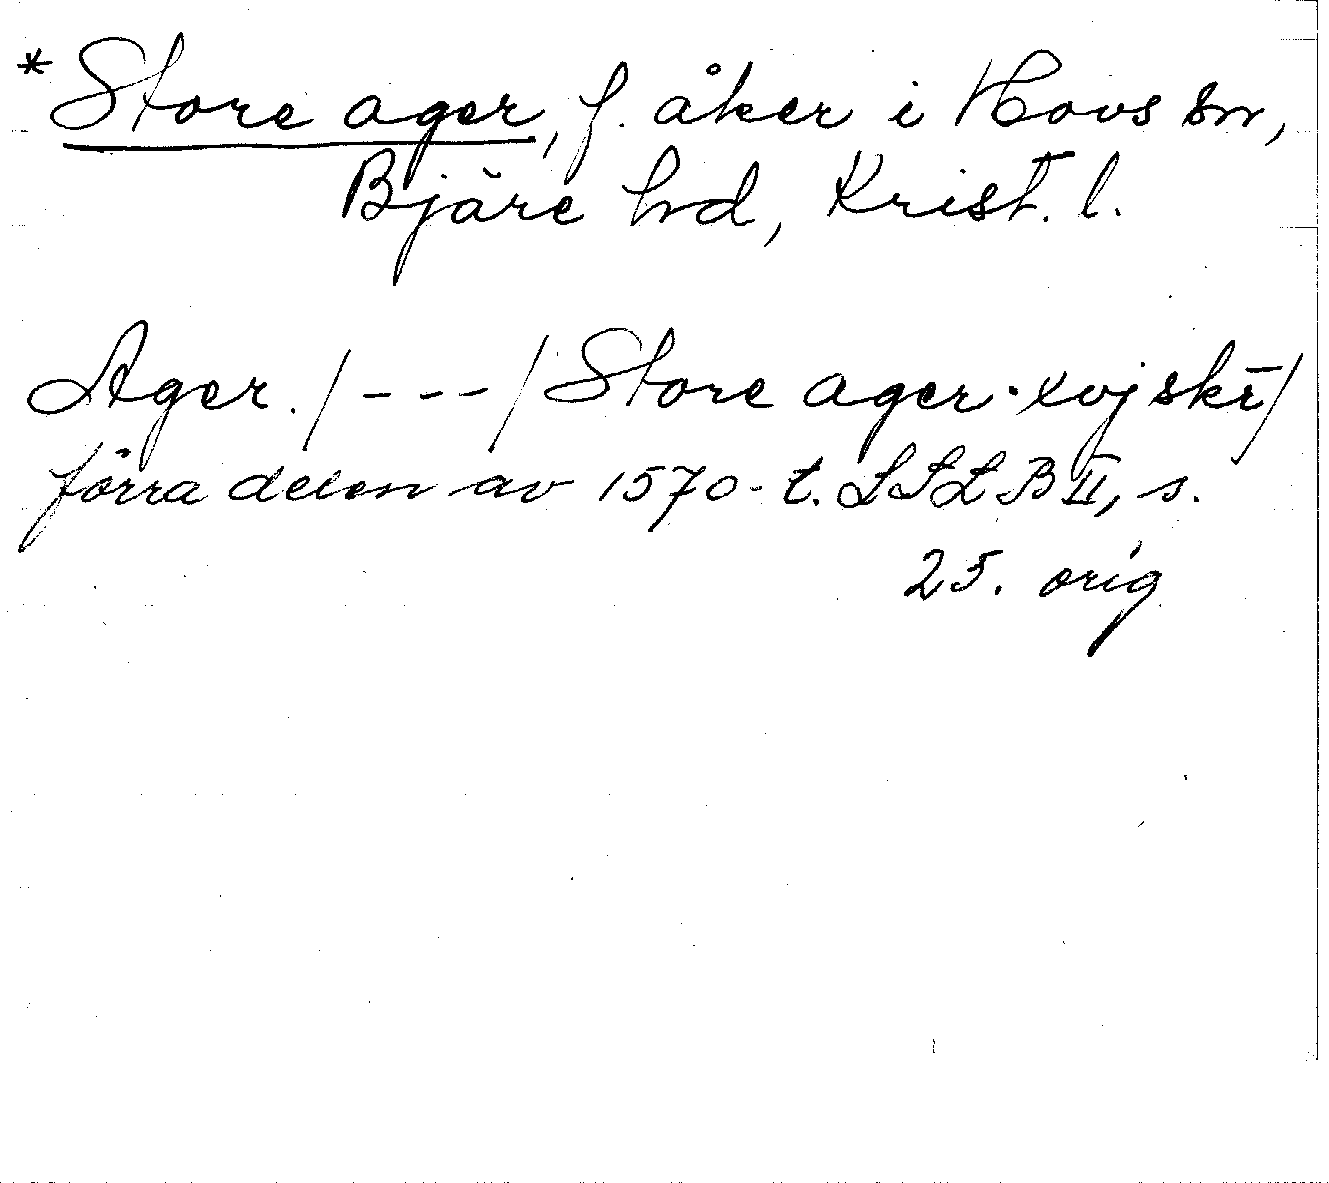 *Store ager, f. åker i Hovs sn,
Bjäre hd, Krist. l.
Ager. / - - - / Store ager · xvj skr̄ /
förra delen av 1570-t. LSLB II, s.
25. orig